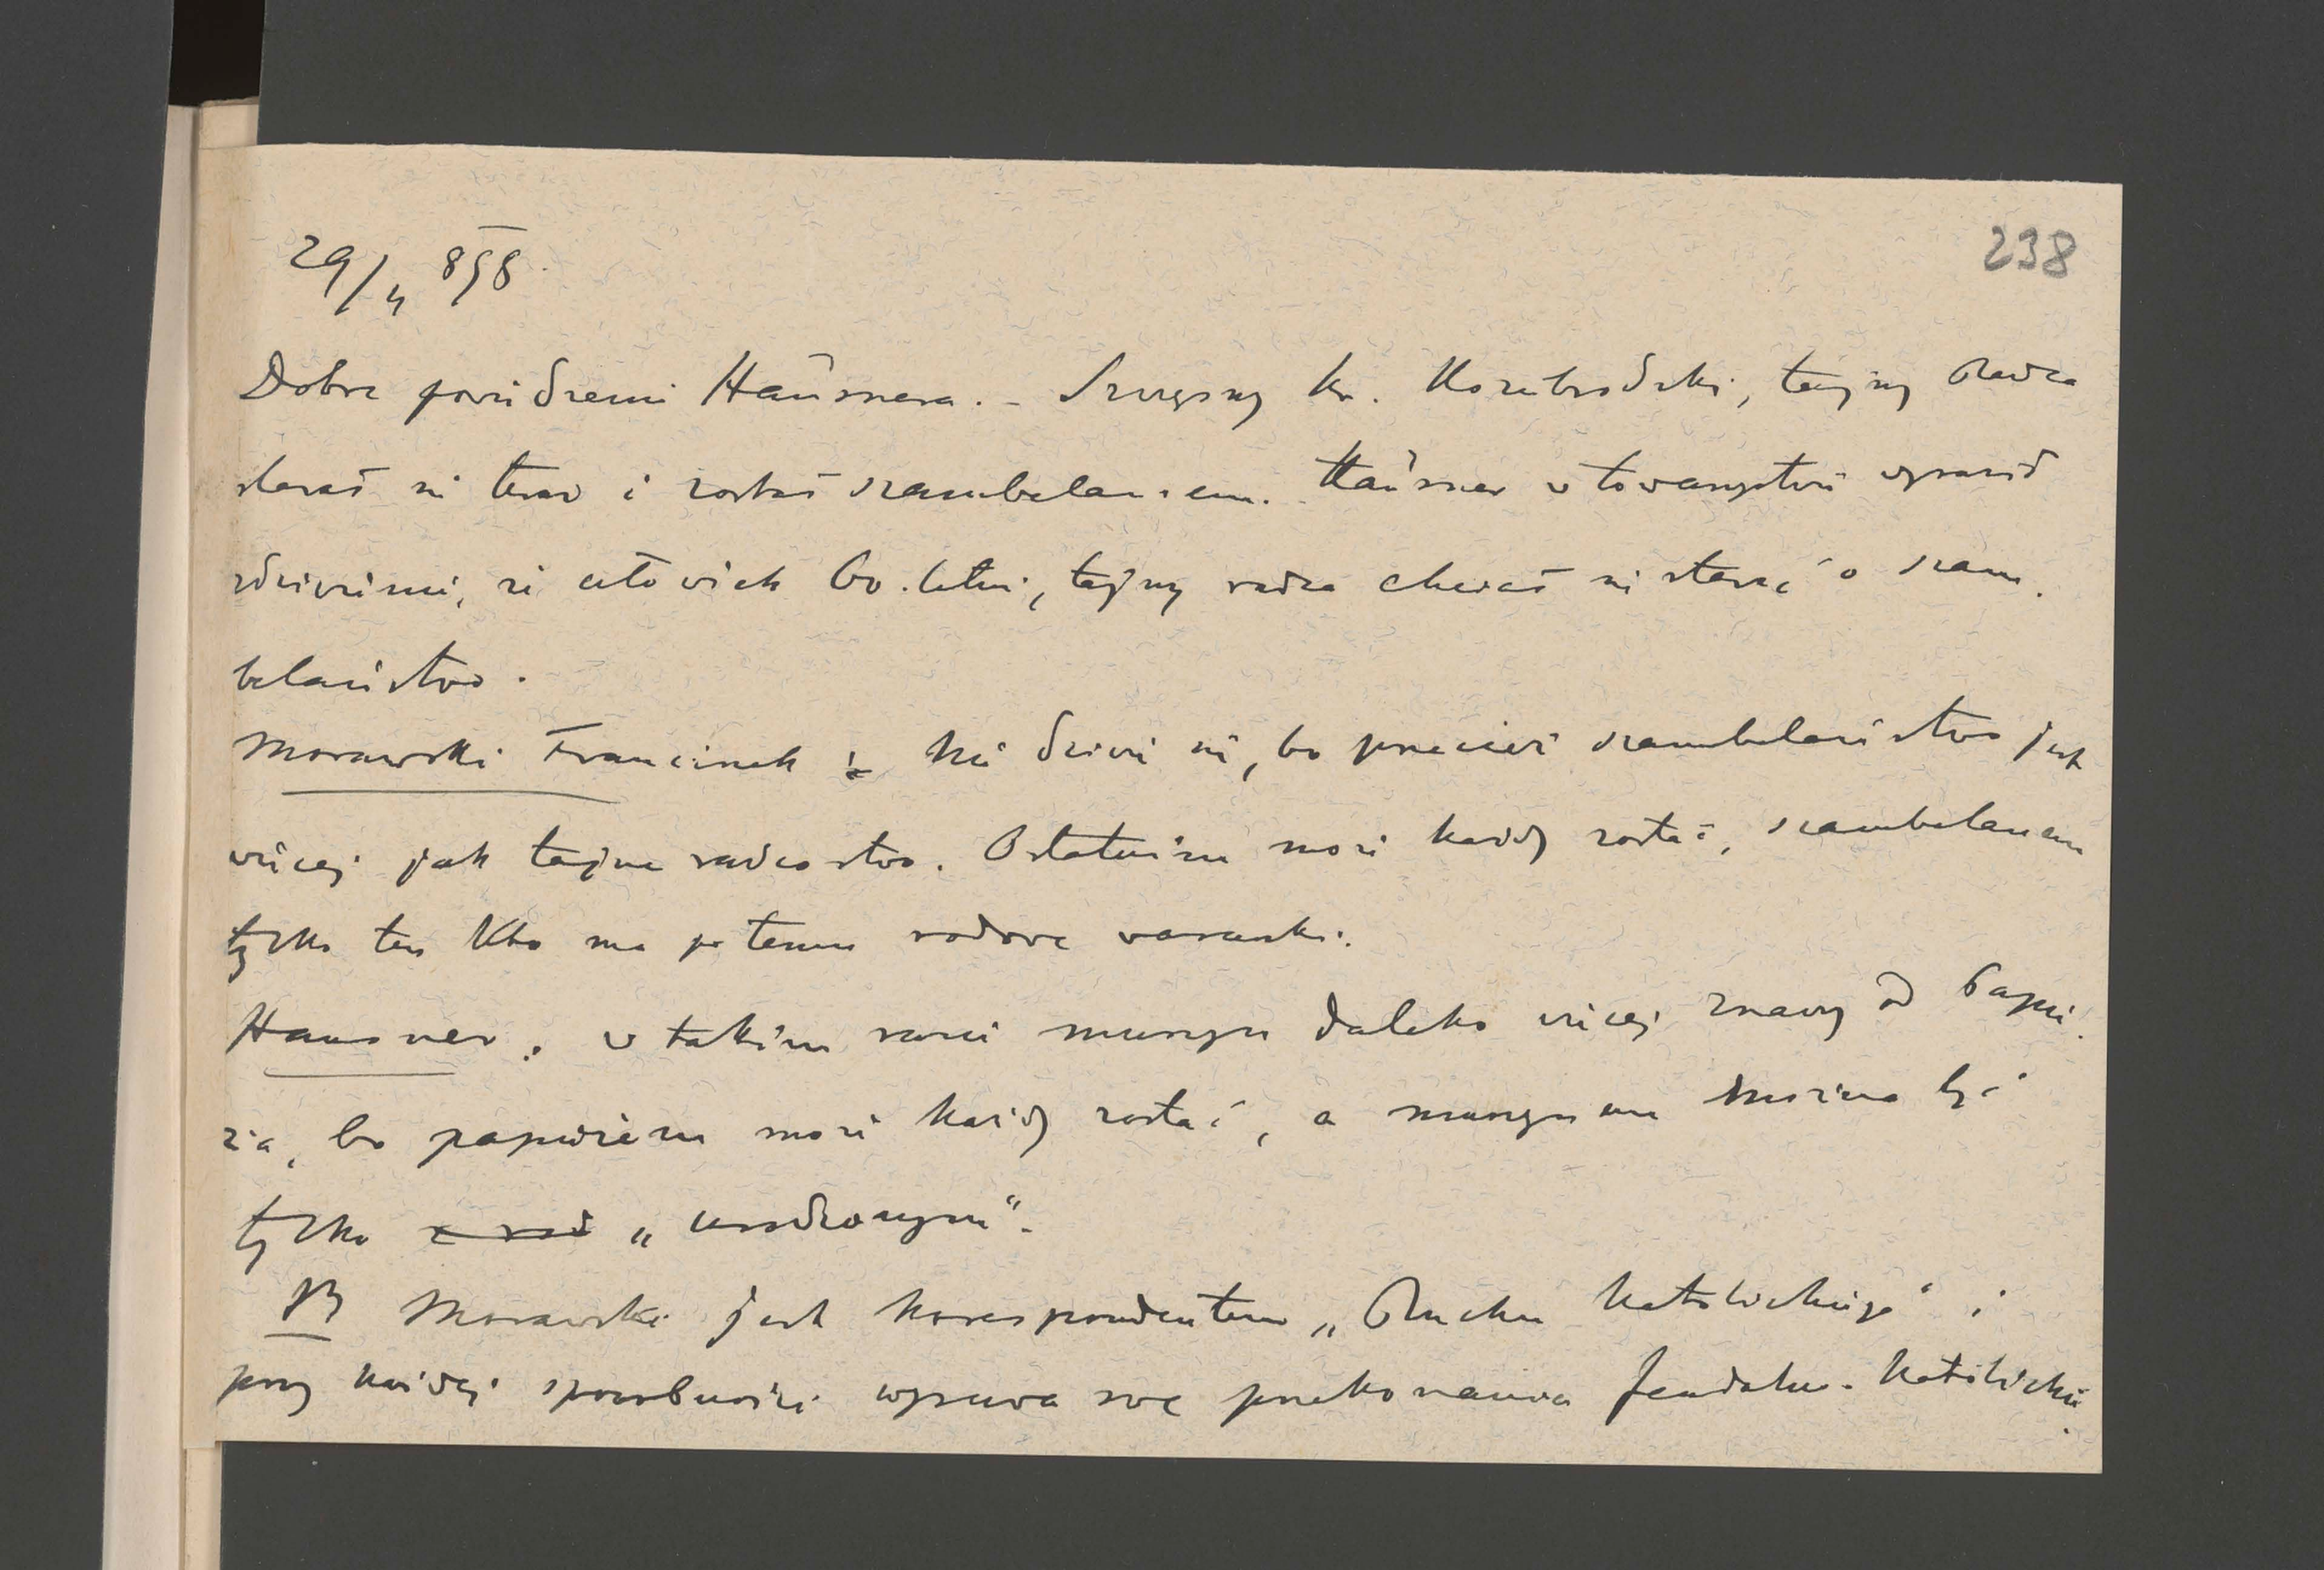 238
29/4 898
Dobre powiedzenie Hausnera. - Szczęsny hr. Koziebrodzki, tajny Radca
starał się teraz i został szambelanem. Hausner w towarzystwie wyraził
zdziwienie, że człowiek 60-letni, tajny radca chciał się starać o szam-
belaństwo.
Morawski Franciszek: Nie dziwi się, bo przecież szambelaństwo jest
więcej jak tajne radcostwo. Ostatnim może każdy zostać, szambelanem
tylko ten kto ma po temu rodowe warunki.
Hausner: w takim razie murzyn daleko więcej znaczy od Papie-
ża, bo papieżem może każdy zostać, a murzynem można być
tylko z rod „urodzonym".
NB Morawski jest korespondentem „Ruchu Katolickiego" i
przy każdej sposobności wysuwa swe przekonania feudalno-katolickie.